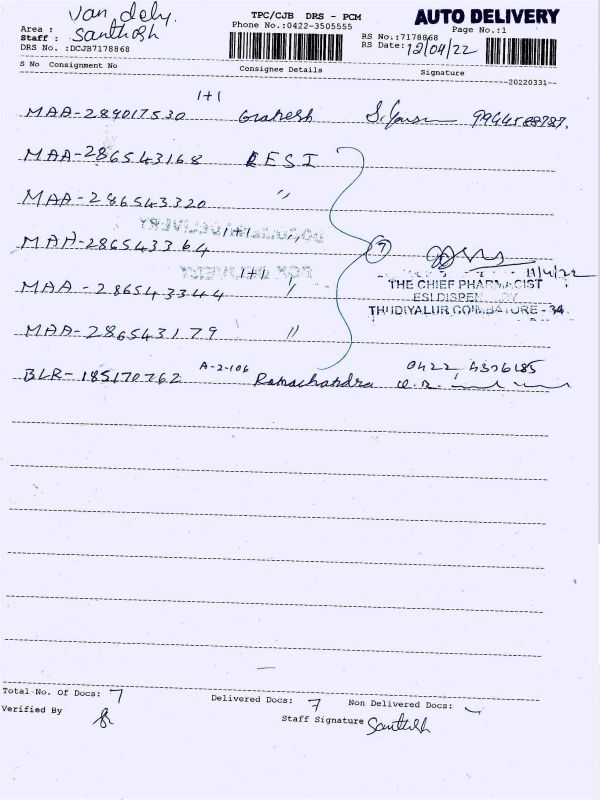 van dely. TPC/CJB DRS - PCM AUTO DELIVERY
Area : Phone No.:0422-3505555 Page No.:1
Staff : Santhosh RS No.:7178868
DRS No. :DCJB7178868 RS Date: 12/04/22
S No Consignment No Consignee Details Signature
20220331
1+1
MAA-289017530
MAA-286543168 ESI
MAA-286543320 "
DOCUMENT DELIVERY
MAA-286543364 1+1+ "
7
POX DELIVERY
MAA-286543344 1+1+ " 11/4/22
THE CHIEF PHARMACIST
ESI DISPEN
THUDIYALUR COIMBATORE - 34
MAA-286543179 "
BLR-185170762 A-2-106 Ramachandra 0422
Total No. of Docs: 7 Delivered Docs: 7 Non Delivered Docs:
Verified By Staff Signature Santhosh